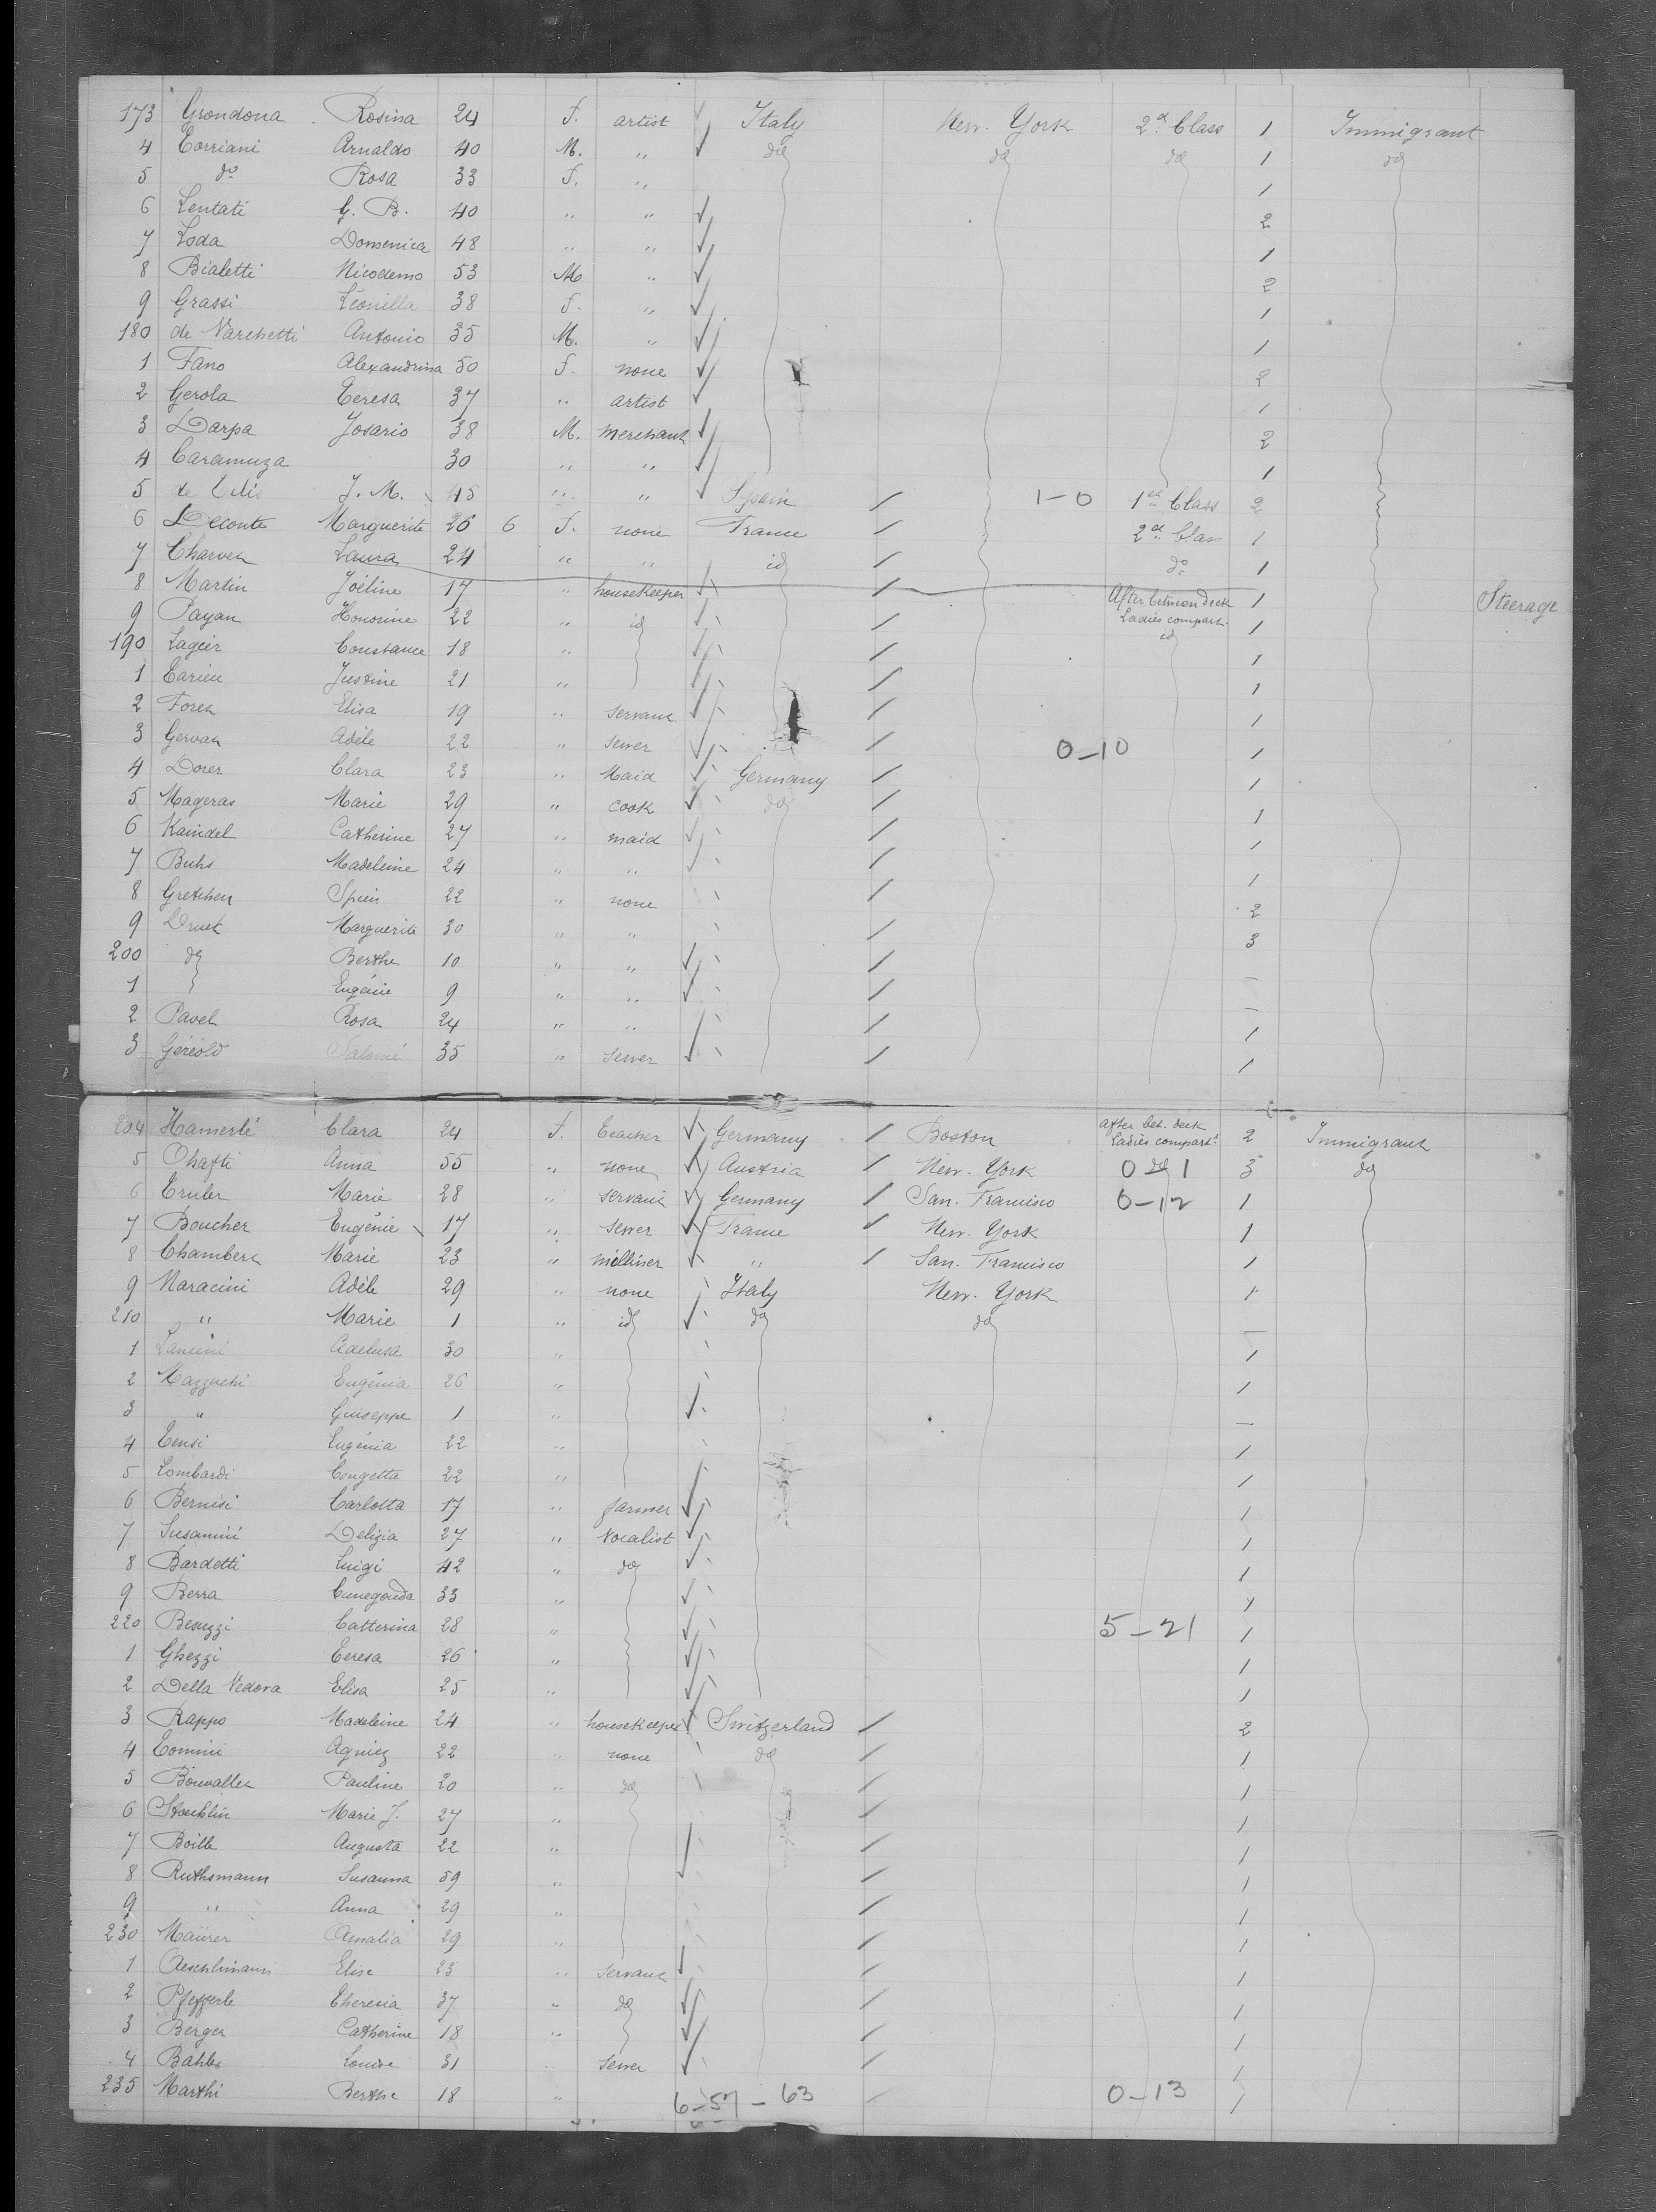 173 Grondona Rosina 24 f. artist Italy New. York 2d Class 1 Immigrant
4 Corriani Arnaldo 40 M. " do do do 1 do
5 do Rosa 33 f. " 1
6 Lentati G. B. 40 " " 2
7 Loda Domenica 48 " " 1
8 Bialetti Nicodemo 53 M " 2
9 Grassi Léonilla 38 f. " 1
180 de Varchetti Antonio 35 M. " 1
1 Fano Alexandrina 50 f. none 2
2 Gerola Teresa 37 " artist 1
3 Darpa Josario 38 M. merchant 2
4 Caramuza 30 " " 1
5 de J. M. 45 " " Spain / 1-0 1st Class 2
6 Leconte Marguerite 26 6 f. none France / 2d Class 1
7 Charvet Laura 24 " " id / do 1
8 Martin Joéline 17 " housekeeper / After between deck Ladies compart. 1 Steerage
9 Payan Honorine 22 " id / id 1
190 Lagier Constance 18 " / 1
1 Carieu Justine 21 " / 1
2 Foret Elisa 19 " servant / 1
3 Gervat Adèle 22 " sewer / 0-10 1
4 Dorer Clara 23 " Maid Germany / 1
5 Mageras Marie 29 " cook do / 1
6 Kaindel Catherine 27 " maid / 1
7 Buhs Madeleine 24 " " / 1
8 Gretchen Spiess 22 " none / 2
9 Druet Marguerite 30 " " / 3
200 do Berthe 10 " " / -
1 Eugénie 9 " " / -
2 Pavet Rosa 24 " " / 1
3 Géréold Salomé 35 " sewer / 1
204 Hamerlé Clara 24 f. Teacher Germany / Boston after bet. deck Ladies compart. 2 Immigrant
5 Ohafti Anna 55 " none Austria / New. York do 0 1 3 do
6 Truber Marie 28 " servant Germany / San. Francisco 0-12 1
7 Boucher Eugénie 17 " sewer France / New. York 1
8 Chambert Marie 23 " milliner " / San. Francisco 1
9 Maracini Adèle 29 " none Italy New. York 1
210 " Marie 1 " id do do -
1 Lancini Adelusa 30 " 1
2 Mazzuchi Eugénia 26 " 1
3 " Guiseppe 1 " -
4 Censi Eugénia 22 " 1
5 Lombardi Congetta 22 " 1
6 Bernisi Carlotta 17 " farmer 1
7 Susanini Delizia 27 " Vocalist 1
8 Bardetti Luigi 42 " do 1
9 Berra Cunegonda 33 " 1
220 Besuzzi Catterina 28 " 5-21 1
1 Ghezzi Teresa 26 " 1
2 Della Vedova Elisa 25 " 1
3 Rappo Madeleine 24 " housekeeper Switzerland / 2
4 Comini Agniez 22 " none do / 1
5 Bouvallet Pauline 20 " do / 1
6 Stoecklin Marie J. 27 " / 1
7 Boille Augusta 22 " / 1
8 Ruthsmann Susanna 59 " / 1
9 " Anna 29 " / 1
230 Maürer Amalia 29 " / 1
1 Aeschlimann Elise 23 " servant / 1
2 Pfefferle Theresia 37 " do / 1
3 Berger Catherine 18 " / 1
4 Bahler Louise 31 " sewer / 1
235 Marthi Berthe 18 " 6-57-63 / 0-13 1